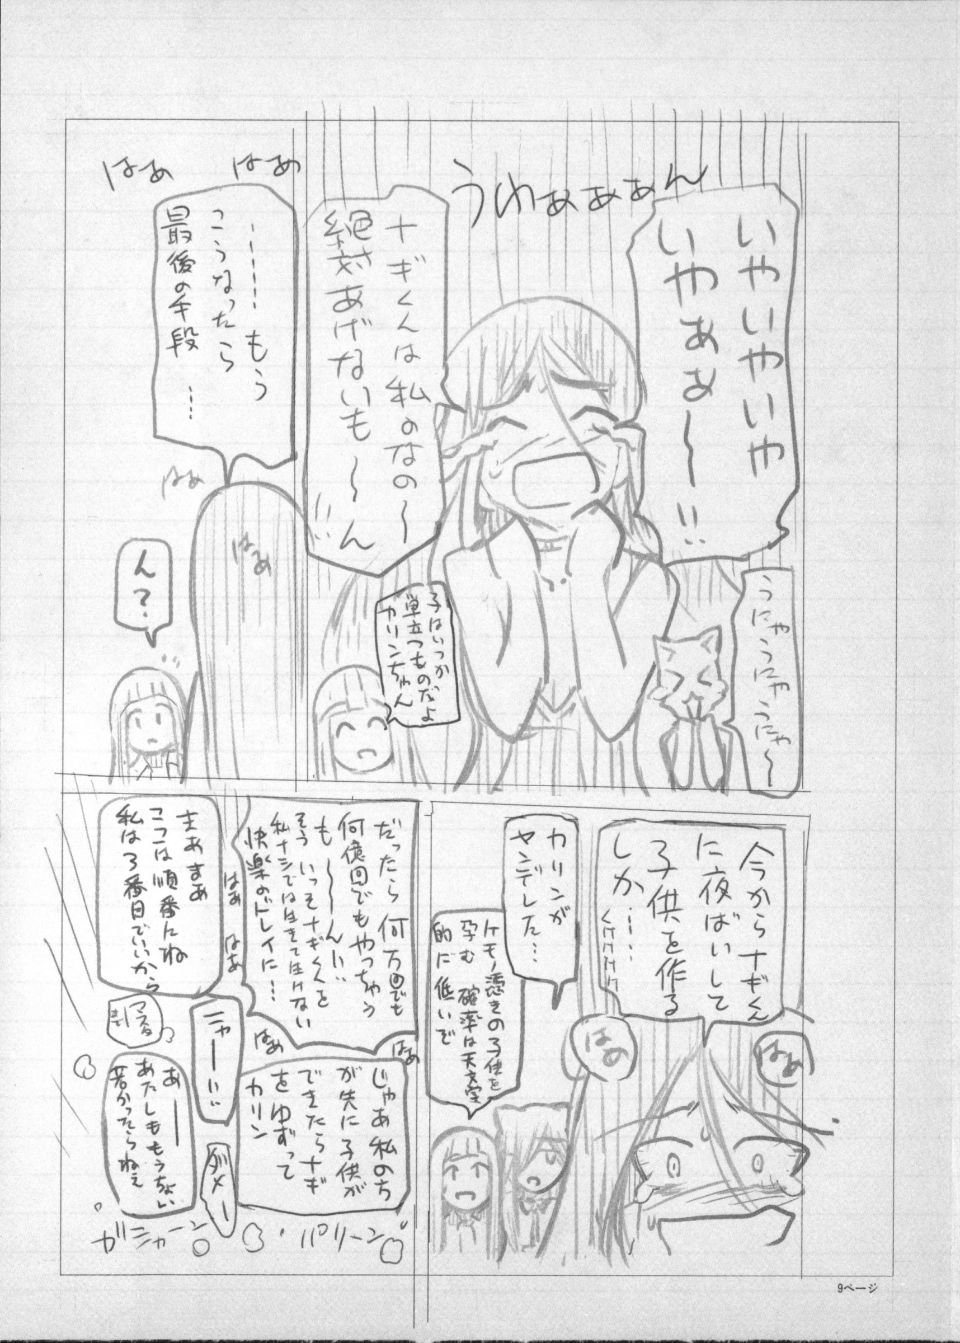 いやいやいや
いやぁぁ～!!
うわぁぁぁん
うにゃうにゃうにゃ～
ナギくんは私のなの～
絶対あげないも～ん
子はいつか
巣立つものだよ
カリンちゃん
はぁ
はぁ
……もう
こうなったら
最後の手段…
はぁ
はぁ
ん?
今からナギくん
に夜ばいして
子供を作る
しか……
ククククク
はぁ
はぁ
カリンが
ヤンデレした…
ケモノ憑きの子供を
孕む確率は天文学
的に低いぞ
だったら何万回でも
何億回でもやっちゃう
も～～ん!!
そういっそナギくんを
私ナシでは生きて生けない
快楽のトレイに…
はぁ
はぁ
はぁ
はぁ
じゃあ私のち
が先に子供が
できたらナギ
をゆずって
カリン
まあまあ
ここは順番にね
私は3番目でいいから
ニャー!!
ダメー
あ――
あたしももうちょい
若かったらねぇ
パリーン
ガシャーン
9ページ